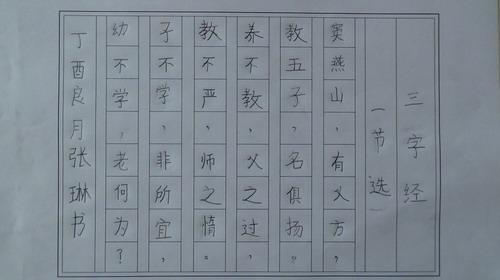 三字经
（节选）
窦燕山，有义方，
教五子，名俱扬。
养不教，父之过，
教不严，师之惰。
子不学，非所宜，
幼不学，老何为？
丁酉良月张琳书